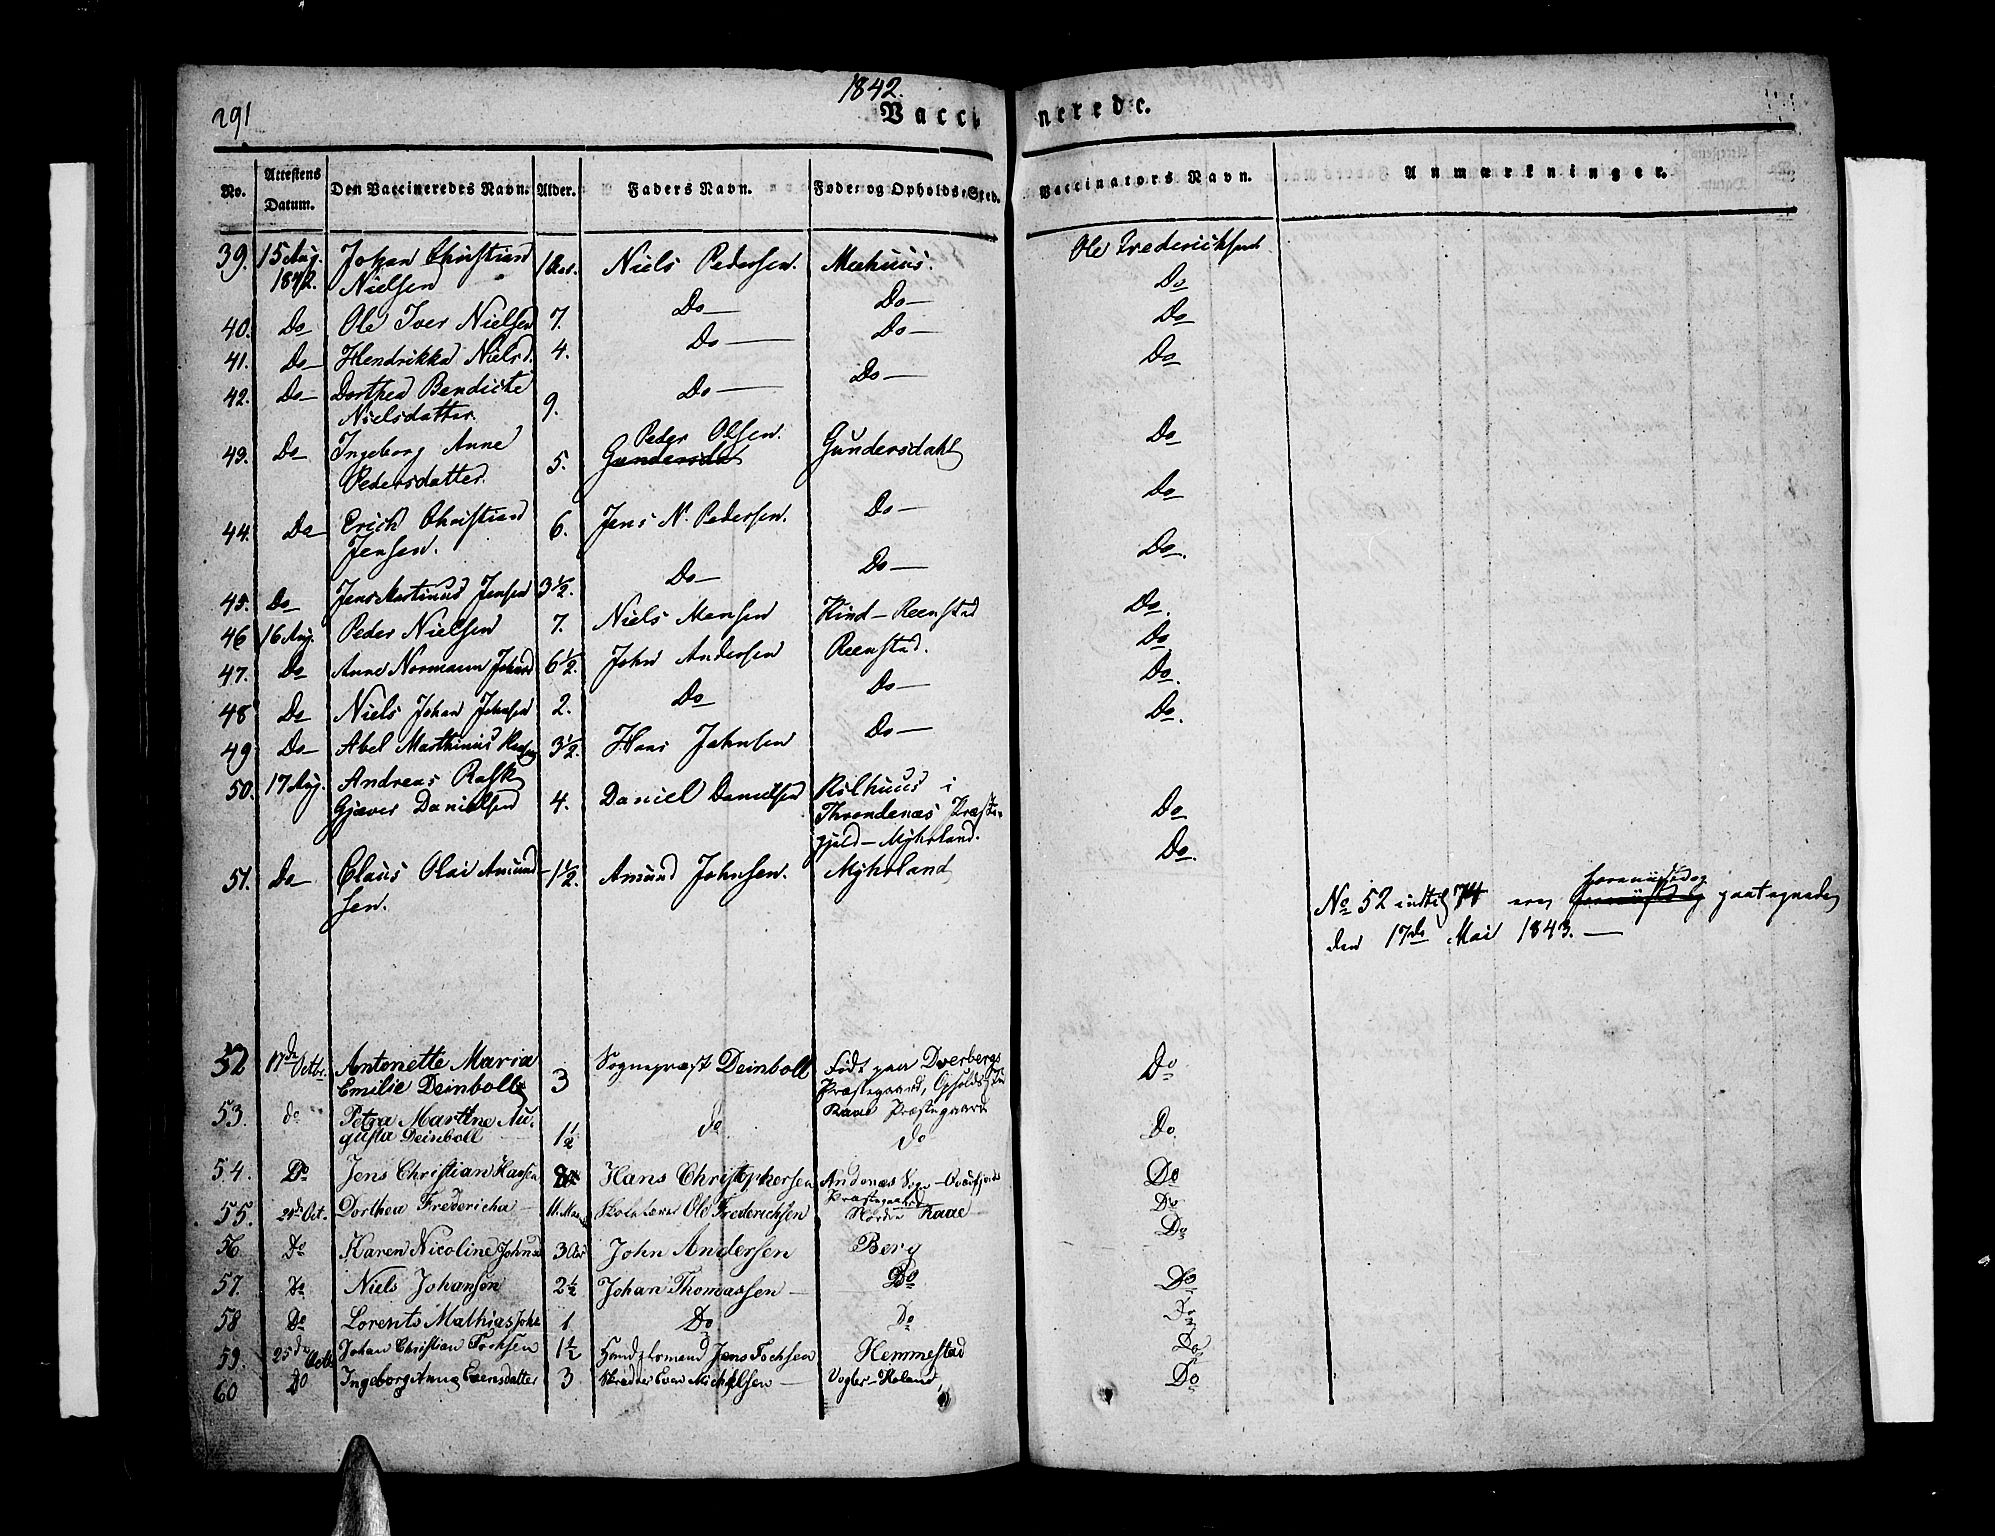 291
1842.
Vaccinerede.
No. Attestens Datum. Den Vaccineredes Navn. Alder. Faders Navn. Føde- og Opholds-Sted. Vaccinators Navn. Anmærkninger.
39. 15 Aug. 1842. Johan Christian Nielsen 1 Aar. Niels Pedersen. Meehuus. Ole Frederichsen
Do
40. Do Ole Iver Nielsen 7. Do Do Do
41. Do Hendrikka Nielsd. 4. Do Do Do
42. Do Dorthea Bendicte Nielsdatter. 9. Do Do
43. Do Ingeborg Anne Pedersdatter. 5. Peder Olsen. Gundersdahl Do
44. Do Erich Christian Jensen. 6. Jens N. Pedersen. Do Do
45. Do Jens Martinus Jensen 3½. Do Do Do.
46 16 Aug. Peder Nielsen 7. Niels Monsen Kind-Reenstad Do.
47. Do Anne Normann Johnsd 6½. John Andersen Reenstad. Do
48 Do Niels Johan Johnsen 2. Do Do Do.
49 Do Abel Marthinus Hansen 3½. Hans Johnsen Do Do.
50. 17 Aug. Andreas Rask Gjæver Danielsen 4. Daniel Danielsen Rilhuus i Throndenæs Præstegjeld - Myhrland. Do
51. Do Claus Olai Amundsen. 1½. Amund Johnsen. Myhrland Do.
No 52 indtil 74 ere gaategnede
den 17de Mai 1843.
52 17de Octbr. Antonette Maria Emilie Deinboll 3 Sognepræst Deinboll Født paa Dverbergs Præstegaard, Opholdsted Præstegaard Do
53. do Petra Martine Augusta Deinboll 1½ do do Do.
54. Do Jens Christian Hansen Hans Christophersen Andenæs Sogn Do
55. 24de Oct. Dorthea Fredericha 11 Maan. Skolelærer Ole Frederichsen Præstegaard Nordre Do
56 Do Karen Nicoline Johnsd 3 Aar John Andersen Berg Do
57. Do Niels Johansen 2½ Johan Thomassen Do Do
58 Do Lorents Mathias Joha 1 Do Do Do
59. 25de Octb. Johan Christian Fochsen 1½ Handelsmand Jens Fochsen Hemmestad Do
60 Do Ingeborg Anna Evensdatter 3 Skrædder Even Michelsen Vogler-Roland, Do